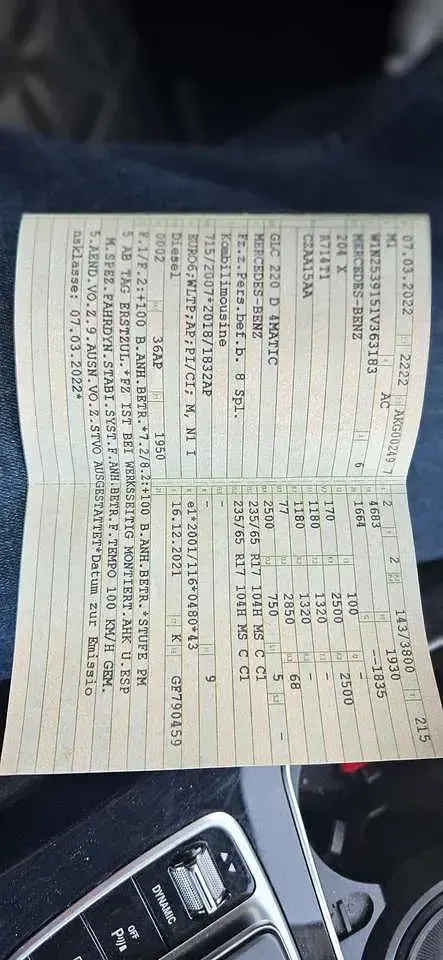 07.03.2022 2222 AKG00249 7
M1 AC
W1N2539151V363183
MERCEDES-BENZ 6
204 X
R7J4T1
C2AA15AA
GLC 220 D 4MATIC
MERCEDES-BENZ
Fz.z.Pers.bef.b. 8 Spl.
Kombilimousine
715/2007*2018/1832AP
EURO6;WLTP;AP;PI/CI; M, N1 I
Diesel
0002 36AP 1950
2 2 143/3800 215
4683 1930
1664 --1835
- 100 -
170 2500 2500
1180 1320 -
1180 1320
77 2850 68
2500 750 5 -
235/65 R17 104H MS C C1
235/65 R17 104H MS C C1
-
- -
e1*2001/116*0480*43 9
16.12.2021 K GF790459
F.1/F.2:+100 B.ANH.BETR.*7.2/8.2:+100 B.ANH.BETR.*STUFE PM
5 AB TAG ERSTZUL.*FZ IST BEI WERKSSEITIG MONTIERT.AHK U.ESP
M.SPEZ.FAHRDYN.STABI.SYST.F.ANH.BETR.F.TEMPO 100 KM/H GEM.
5.AEND.VO.Z.9.AUSN.VO.Z.STVO AUSGESTATTET*Datum zur Emissio
nsklasse: 07.03.2022*
DYNAMIC
OFF
P